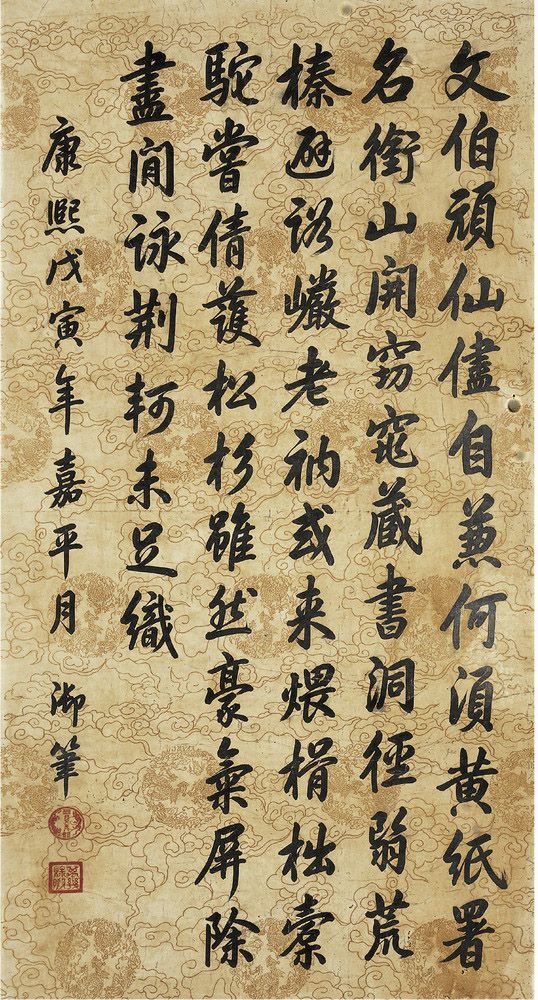 文伯頑仙儘自兼何須黃紙署
名銜山開窈窕藏書洞徑翦荒
榛避俗巖老衲或来煨榾柮橐
駝嘗倩護松杉雖然豪氣屏除
盡閒詠荆軻未足織
康熙戊寅年嘉平月 御筆